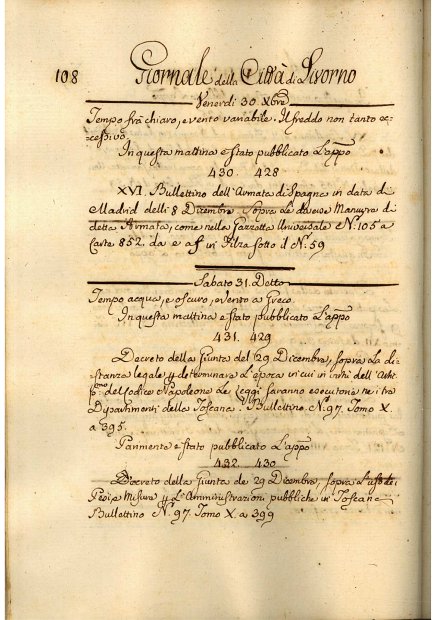 108 Giornale della Città di Livorno
Venerdi 30 Xbre
Tempo frà chiaro, e vento variabile. Il freddo non tanto ec-
cessivo
In questa mattina è stato pubblicato L'appo
430. 428
XVI. Bullettino dell'Armata di Spagna in data di
Madrid delli 8 Dicembre. Sopra Le diverse Manuvre di
detta Armata, come nella Gazzetta Universale N.º 105 a
Carte 852. da e af in Filza sotto il N.º 59
Sabato 31. Detto
Tempo acqua, e oscuro, e Vento a Greco.
In questa mattina è stato pubblicato L'appo
431. 429
Decreto della Giunta del 29 Dicembre, sopra La di-
stanza legale p determinare L'epoca in cui in virtù dell'Arti-
p.mo del Codice Napoleone Le Leggi saranno esecutorie nei tre
Dipartimenti della Toscana. Bullettino N.º 97. Tomo X.
a 395.
Parimente è stato pubblicato L'appo
432. 430
Decreto della Giunta de 29 Dicembre, sopra L'uso di
Pesi, e Misure p L'Amministrazioni pubbliche in Toscana
Bullettino N.º 97. Tomo X. a 399